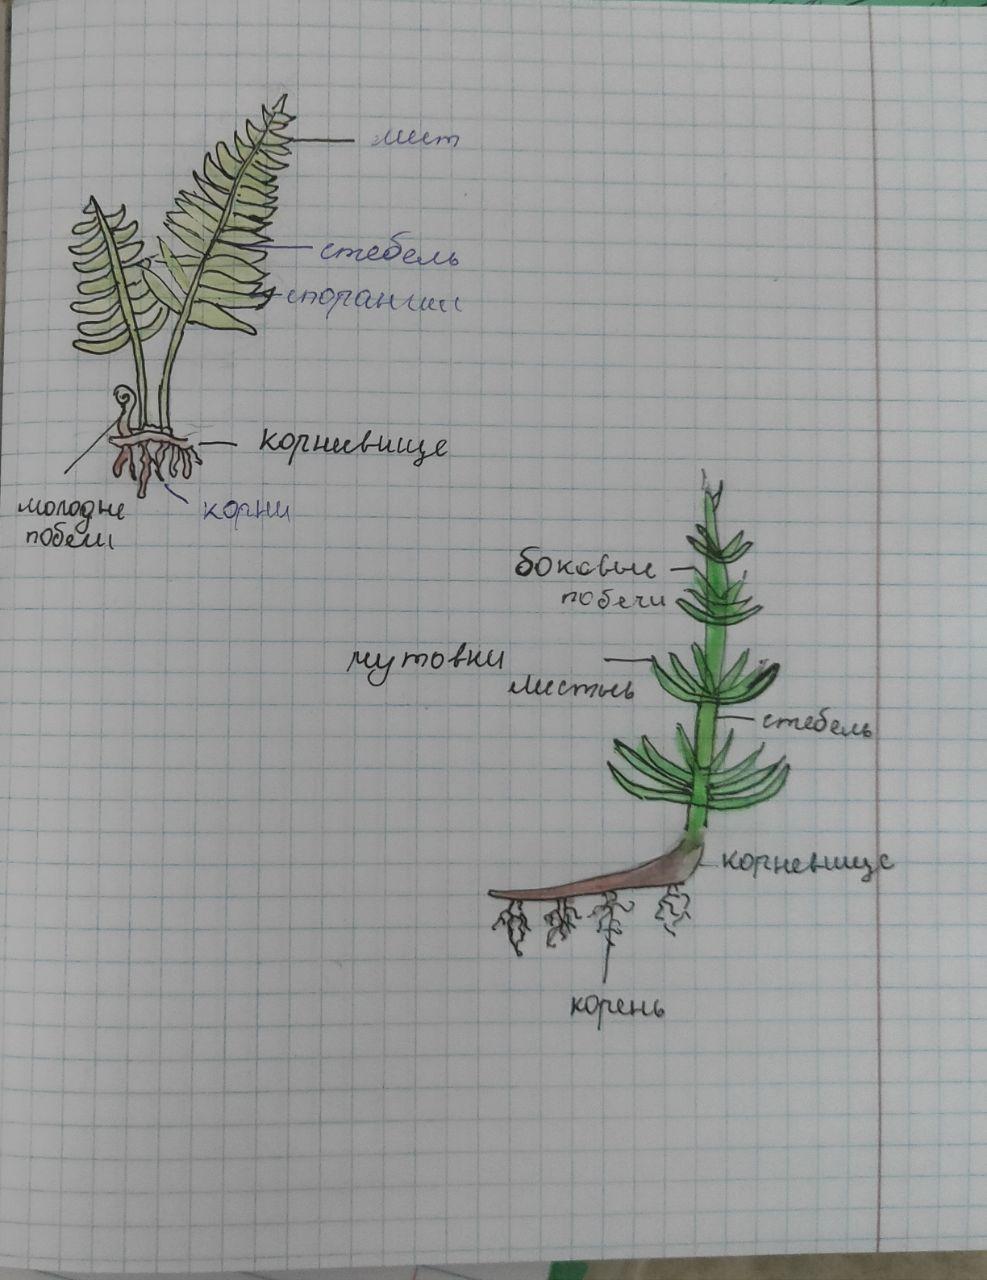 лист
стебель
спорангии
корневище
молодые
побеги
корни
боковые
побеги
мутовки
листьев
стебель
корневище
корень